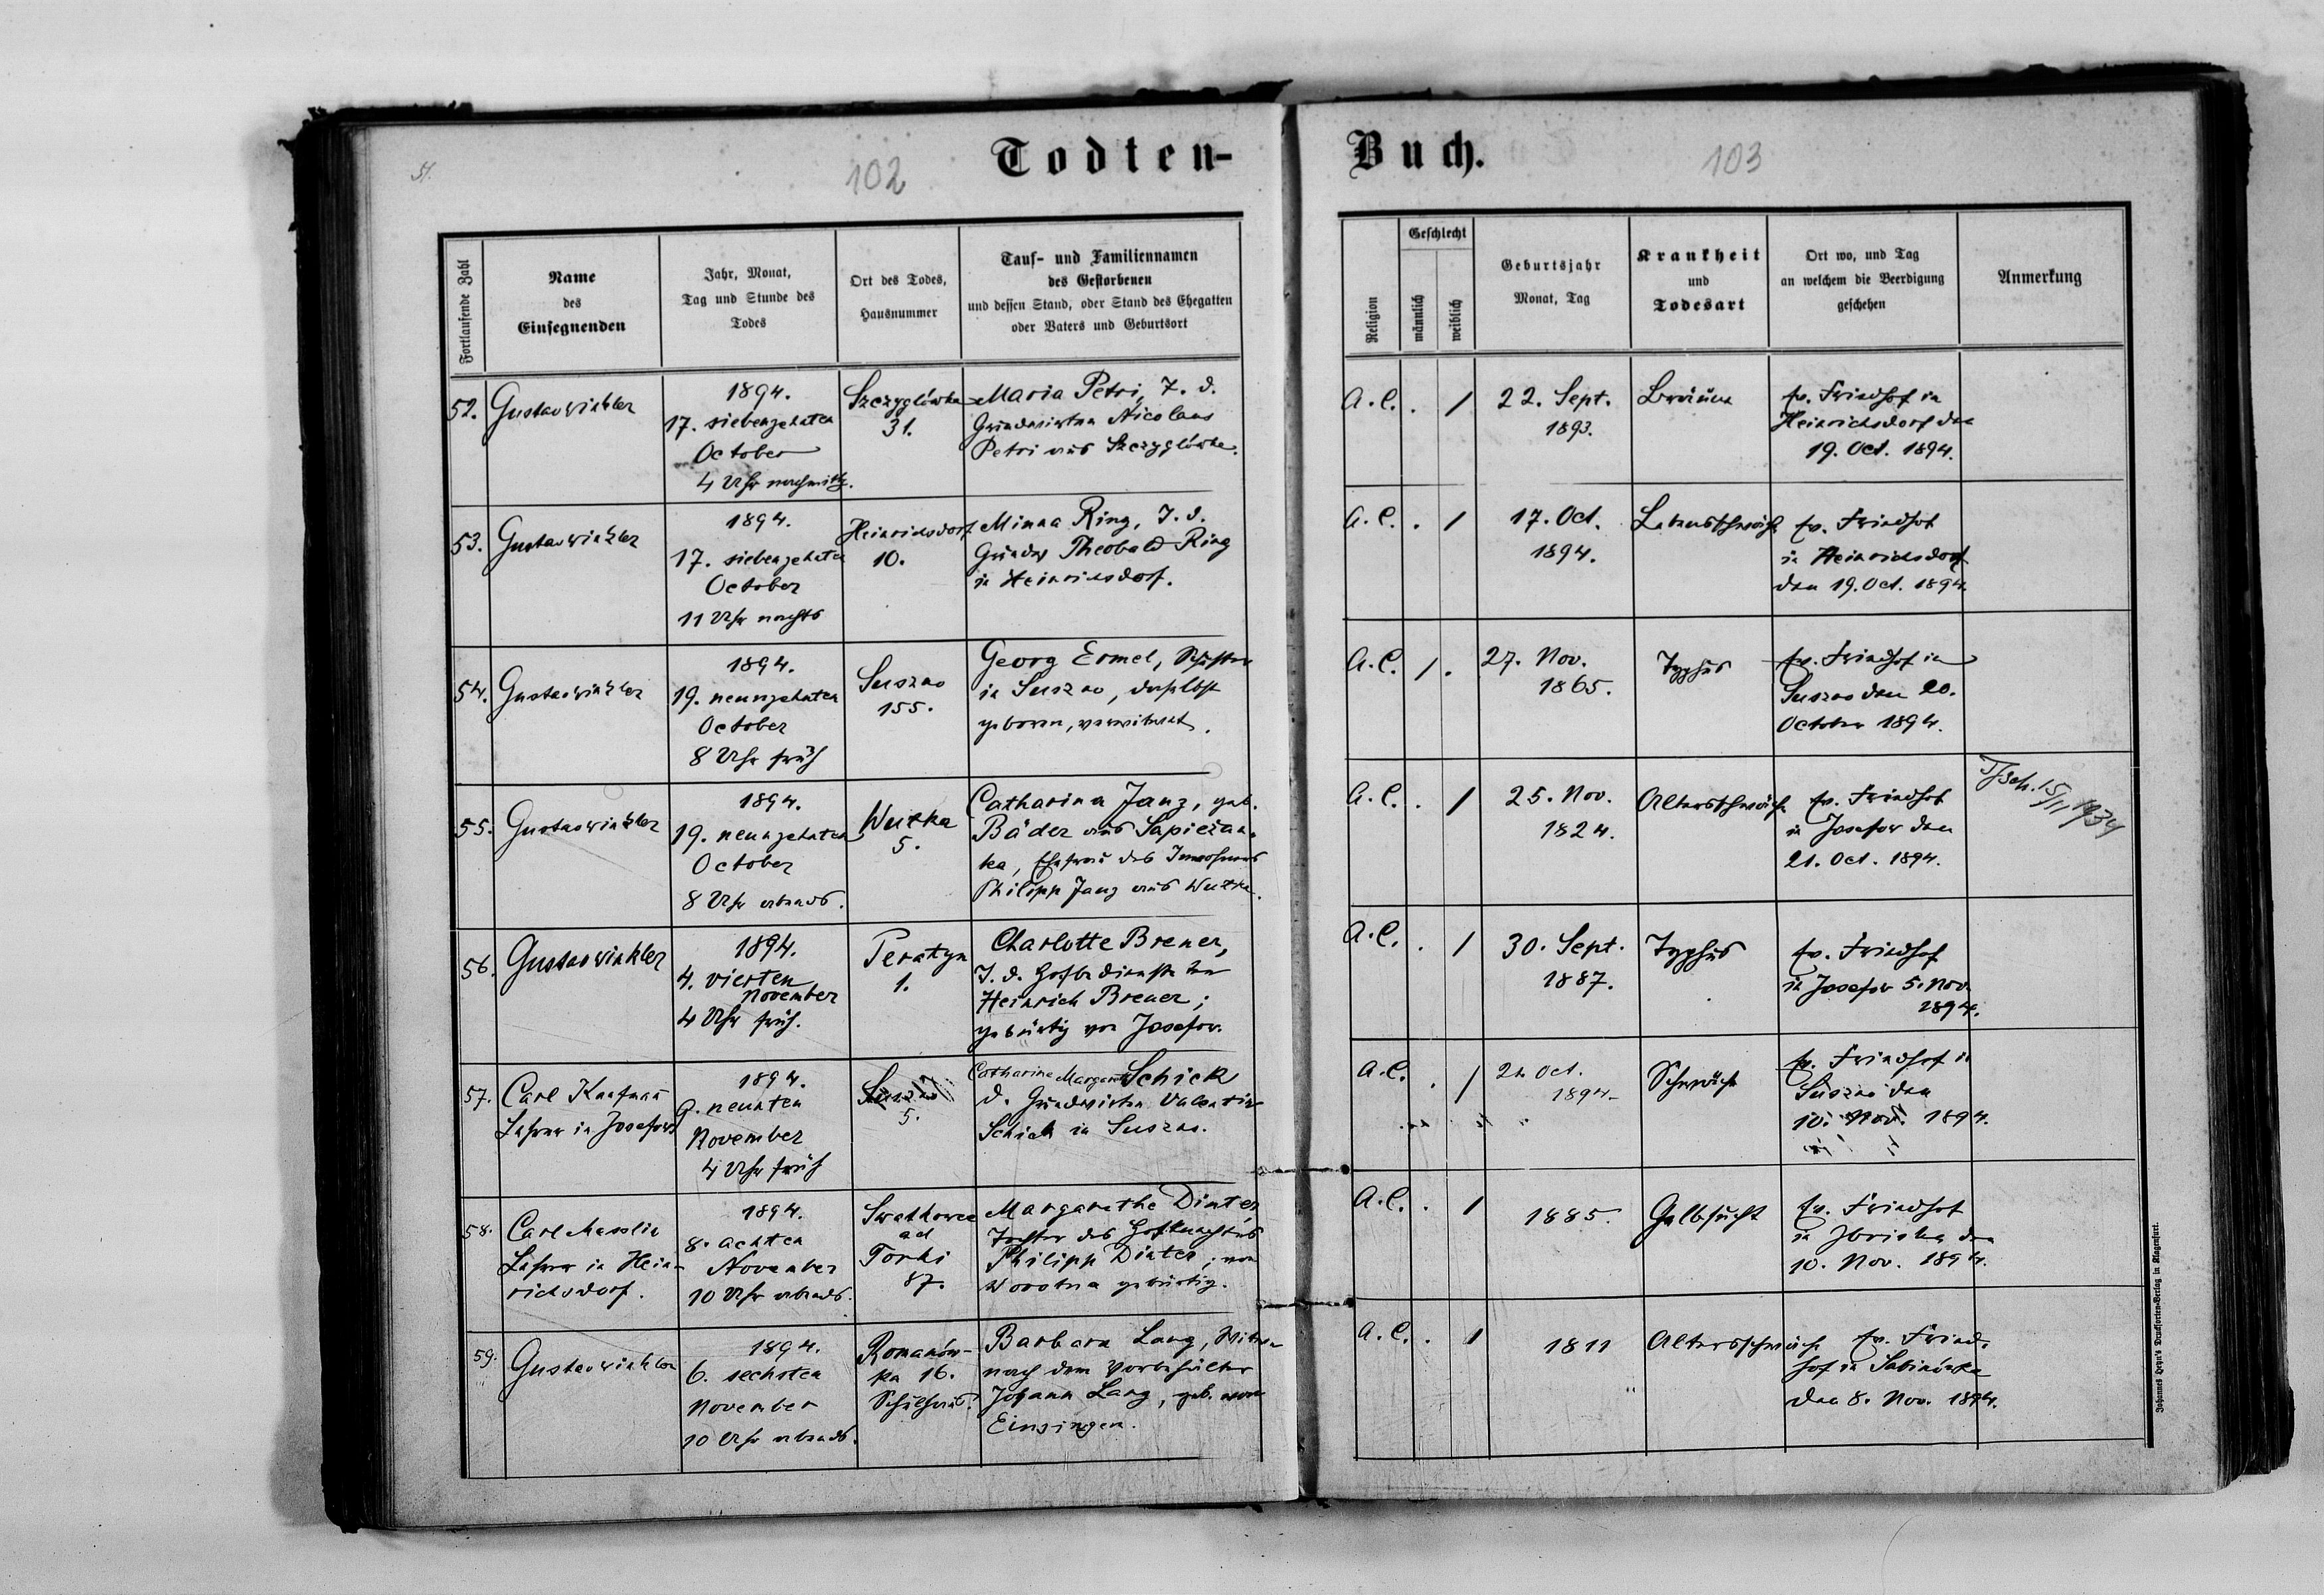 51.
102
Todten-
Fortlaufende Zahl
Name
des
Einsegnenden
Jahr, Monat,
Tag und Stunde des
Todes
Ort des Todes,
Hausnummer
Tauf- und Familiennamen
des Gestorbenen
und dessen Stand, oder Stand des Ehegatten
oder Vaters und Geburtsort
52.
Gustav Winkler
1894.
17. siebenzehnten
October
4 Uhr nachmittg.
Szczyglówka
31.
Maria Petri, T. d.
Grundwirten Nicolaus
Petri aus Szczyglówka.
53.
Gustav Winkler
1894.
17. siebenzehnten
October
11 Uhr nachts
Heinrichsdorf
10.
Minna Ring, T. d.
Grundw Theobald Ring
in Heinrichsdorf.
54.
Gustav Winkler
1894.
19. neunzehnten
October
8 Uhr früh
Suszno
155.
Georg Ermel,
in Suszno, daselbst
geboren, verwitwet.
55.
Gustav Winkler
1894.
19. neunzehnten
October
8 Uhr abends.
Wuzka
5.
Catharina Janz, geb.
Bäder aus Sapieżan-
ka, Ehefrau des Inwohners
Philipp Janz aus Wuzka.
56.
Gustav Winkler
1894.
4. vierten
November
4 Uhr früh.
Peratyn
1.
Charlotte Brener,
T. d. Hofbediensteten
Heinrich Brener;
gebürtig von Josefow.
57.
Carl Kaufman
Lehrer in Josefow
1894.
9. neunten
November
4 Uhr früh
Suszno
5.
Catharina Margareth Schick
d. Grundwirten Valentin
Schick in Suszno.
58.
Carl Messlin
Lehrer in Hein-
richsdorf.
1894.
8. achten
November
10 Uhr abends.
ad
Torki
87.
Margarethe Dinter
Tochter des Hofknechtes
Philipp Dinter; von
gebürtig.
59.
Gustav Winkler
1894.
6. sechsten
November
10 Uhr abends.
Romanów-
ka 16.
Schulhaus.
Barbara Lang, Witwe
nach dem Vorbehälter
Johann Lang, geb. von
Einsingen.
Buch.
103
Religion
Geschlecht
männlich
weiblich
Geburtsjahr
Monat, Tag
Krankheit
und
Todesart
Ort wo, und Tag
an welchem die Beerdigung
geschehen
Anmerkung
A. C. . /
22. Sept.
1893.
Bräune
ev. Friedhof in
Heinrichsdorf den
19. Oct. 1894.
A. C. . /
17. Oct.
1894.
Lebensschwäche
ev. Friedhof
in Heinrichsdorf
den 19. Oct. 1894.
A. C. / .
27. Nov.
1865.
Typhus
ev. Friedhof in
Suszno den 20.
October 1894.
A. C. . /
25. Nov.
1824.
Altersschwäche
ev. Friedhof
in Josefow den
21. Oct. 1894.
Tfsch. 15/11 1934
A. C. . /
30. Sept.
1887.
Typhus
ev. Friedhof
in Josefow 5. Nov.
1894.
A. C. . /
Oct.
1894
Schwäche
ev. Friedhof in
Suszno den
10. Nov. 1894.
A. C. . /
1885.
Gelbsucht
ev. Friedhof
in den
10. Nov. 1894.
A. C. . /
1811
Altersschwäche
ev. Fried-
hof in Sabinówka
den 8. Nov. 1894.
Johannes Heyn's Drucksorten-Verlag in Klagenfurt.